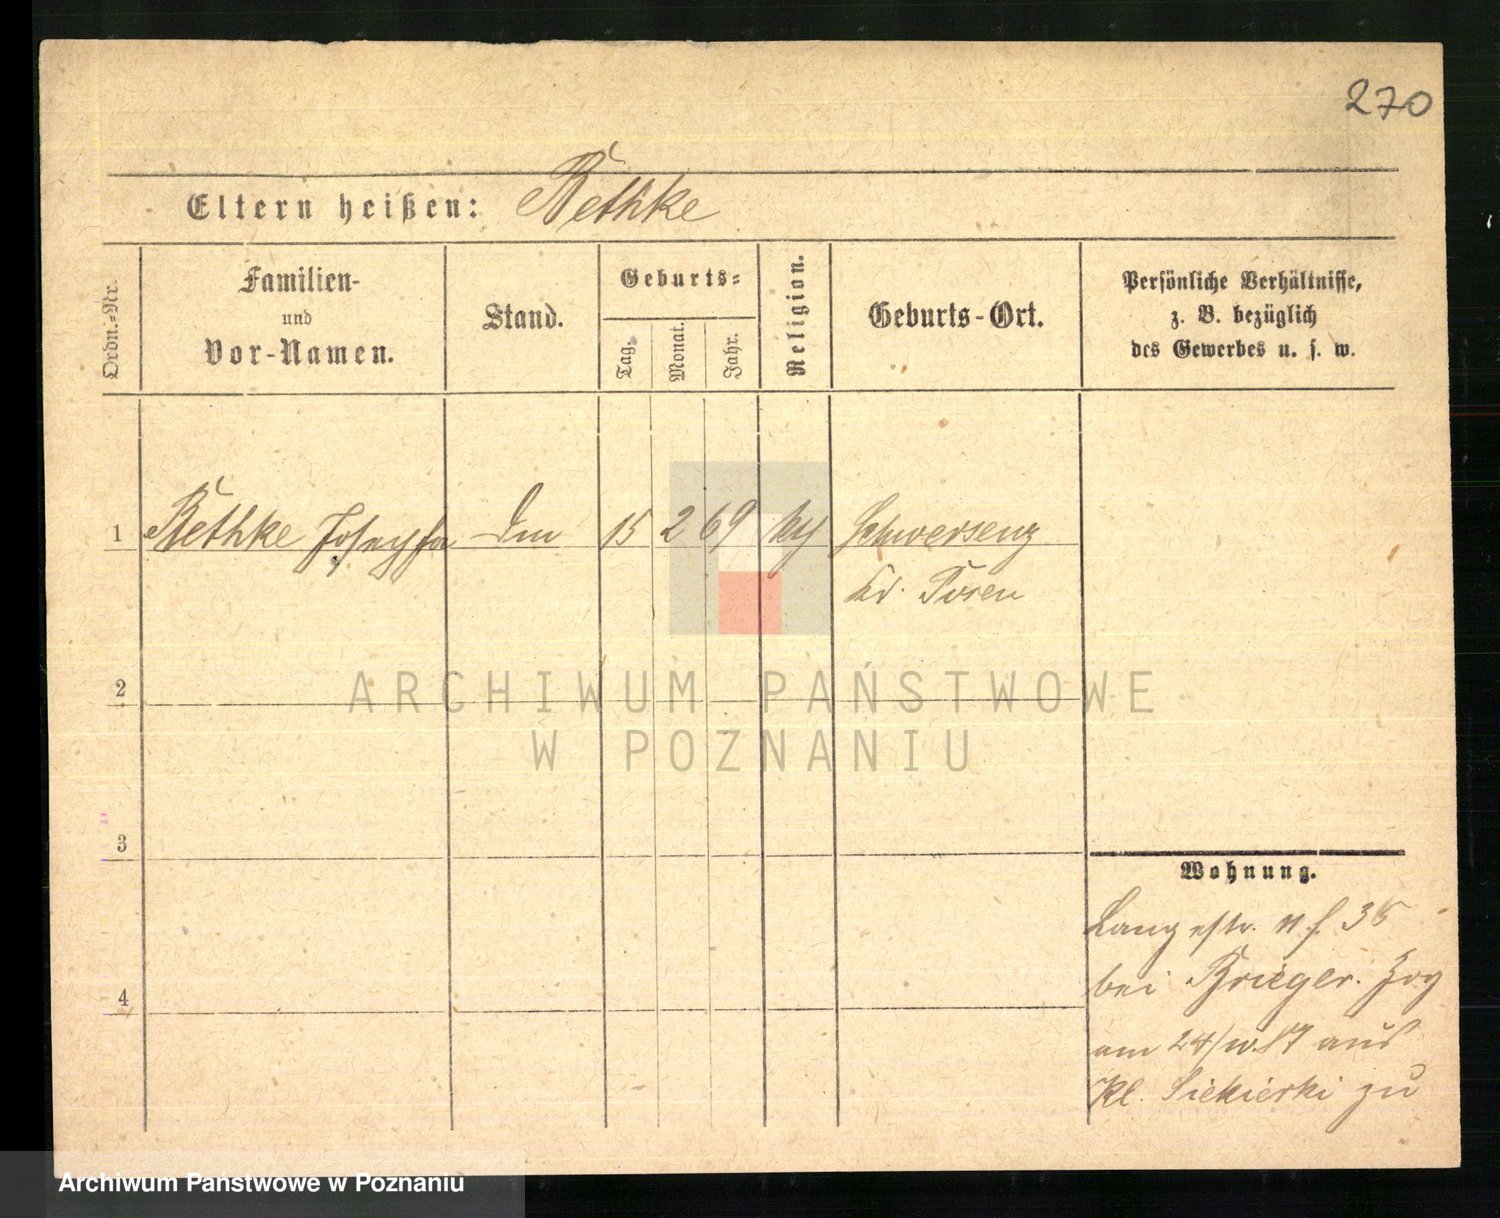 270
Eltern heißen: Bethke
Ordn.-Nr.
Familien-
und
Vor-Namen.
Stand.
Geburts-
Tag.
Monat.
Jahr.
Religion.
Geburts-Ort.
Persönliche Verhältnisse,
z. B. bezüglich
des Gewerbes u. s. w.
1 Bethke Josepha 15 2 69 Schwersenz
Kr. Posen
2
3
4
ARCHIWUM PAŃSTWOWE
W POZNANIU
Wohnung.
Langestr. 35
bei Krieger. Zog
am 24/ 87 aus
Kl. Siekierki zu
Archiwum Państwowe w Poznaniu